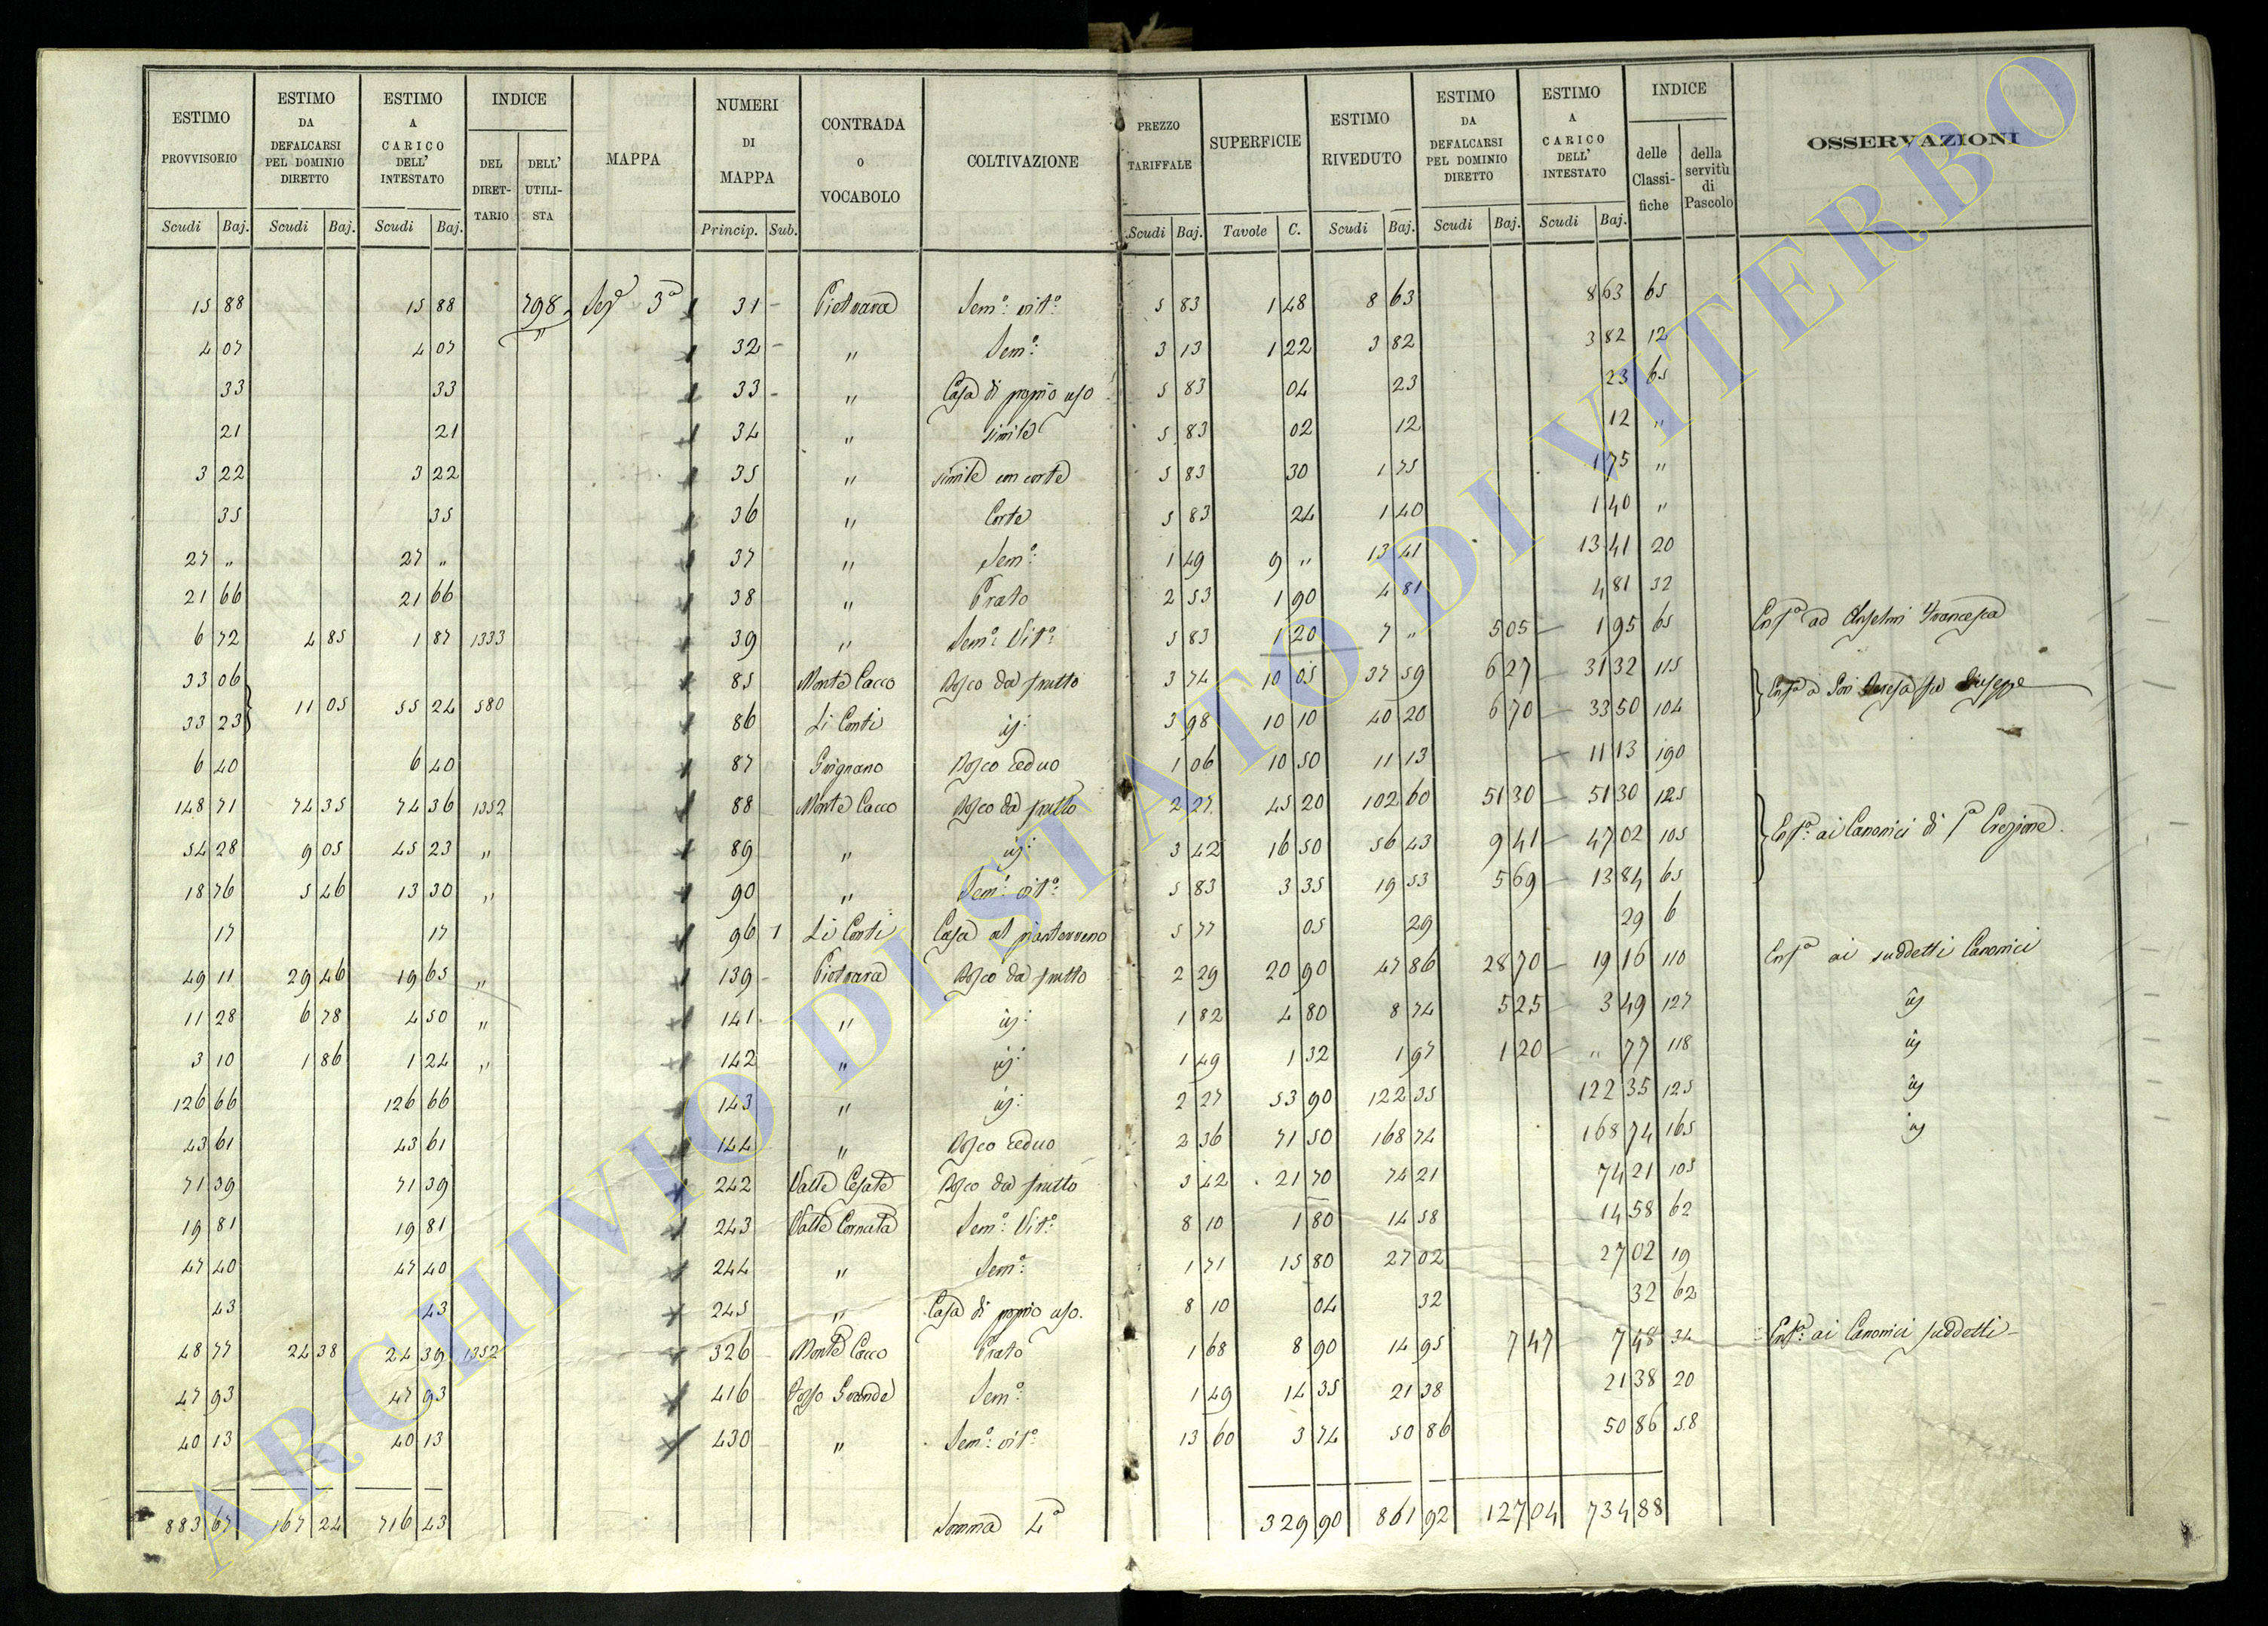 ESTIMO PROVVISORIO | ESTIMO DA DEFALCARSI PEL DOMINIO DIRETTO | ESTIMO A CARICO DELL' INTESTATO | INDICE DEL DIRETTARIO | DELL' UTILISTA | MAPPA | NUMERI DI MAPPA | CONTRADA o VOCABOLO | COLTIVAZIONE | PREZZO TARIFFALE | SUPERFICIE | ESTIMO RIVEDUTO | ESTIMO DA DEFALCARSI PEL DOMINIO DIRETTO | ESTIMO A CARICO DELL' INTESTATO | INDICE delle Classifiche | della servitù di Pascolo | OSSERVAZIONI
Scudi Baj. | Scudi Baj. | Scudi Baj. | Princip. Sub. | Scudi Baj. | Tavole C. | Scudi Baj. | Scudi Baj. | Scudi Baj.
15 88 | 15 88 | 798 | 3ª | 31 | Pietrara | Sem.º vit.º | 5 83 | 1 48 | 8 63 | 8 63 | 65
4 07 | 4 07 | " | 32 | " | Sem.º | 3 13 | 1 22 | 3 82 | 3 82 | 12
33 | 33 | 33 | " | Casa di proprio uso | 5 83 | 04 | 23 | 23 | 65
21 | 21 | 34 | " | simile | 5 83 | 02 | 12 | 12 | "
3 22 | 3 22 | 35 | " | simile con corte | 5 83 | 30 | 1 75 | 1 75 | "
35 | 35 | 36 | " | Corte | 5 83 | 24 | 1 40 | 1 40 | "
27 " | 27 " | 37 | " | Sem.º | 1 49 | 9 " | 13 41 | 13 41 | 20
21 66 | 21 66 | 38 | " | Prato | 2 53 | 1 90 | 4 81 | 4 81 | 32
6 72 | 4 85 | 1 87 | 1333 | 39 | " | Sem.º Vit.º | 5 83 | 1 20 | 7 " | 5 05 | 1 95 | 65 | Enf.ª ad Anselmi Francesca
33 06 | 85 | Monte Cacco | Bosco da frutto | 3 74 | 10 05 | 37 59 | 6 27 | 31 32 | 115
11 05 | 55 24 | 580 | Enf.ª a Teresa fu Giuseppe
33 23 | 86 | Li Conti | id: | 3 98 | 10 10 | 40 20 | 6 70 | 33 50 | 104
6 40 | 6 40 | 87 | Grignano | Bosco ceduo | 1 06 | 10 50 | 11 13 | 11 13 | 190
148 71 | 74 35 | 74 36 | 1352 | 88 | Monte Cacco | Bosco da frutto | 2 27 | 45 20 | 102 60 | 51 30 | 51 30 | 125
54 28 | 9 05 | 45 23 | " | 89 | " | id: | 3 42 | 16 50 | 56 43 | 9 41 | 47 02 | 105 | Enf.ª ai Canonici di 1ª Erezione
18 76 | 5 46 | 13 30 | " | 90 | " | Sem.º vit.º | 5 83 | 3 35 | 19 53 | 5 69 | 13 84 | 65
17 | 17 | 96 1 | Li Conti | Casa al pianterreno | 5 77 | 05 | 29 | 29 | 6
49 11 | 29 46 | 19 65 | " | 139 | Pietrara | Bosco da frutto | 2 29 | 20 90 | 47 86 | 28 70 | 19 16 | 110 | Enf.ª ai suddetti Canonici
11 28 | 6 78 | 4 50 | " | 141 | " | id: | 1 82 | 4 80 | 8 74 | 5 25 | 3 49 | 127 | id
3 10 | 1 86 | 1 24 | " | 142 | " | id: | 1 49 | 1 32 | 1 97 | 1 20 | " 77 | 118 | id
126 66 | 126 66 | 143 | " | id: | 2 27 | 53 90 | 122 35 | 122 35 | 125 | id
43 61 | 43 61 | 144 | " | Bosco ceduo | 2 36 | 71 50 | 168 74 | 168 74 | 165 | id
71 39 | 71 39 | 242 | Valle Cesate | Bosco da frutto | 3 42 | 21 70 | 74 21 | 74 21 | 105
19 81 | 19 81 | 243 | Valle Cornuta | Sem.º Vit.º | 8 10 | 1 80 | 14 58 | 14 58 | 62
47 40 | 47 40 | 244 | " | Sem.º | 1 71 | 15 80 | 27 02 | 27 02 | 19
43 | 43 | 245 | " | Casa di proprio uso. | 8 10 | 04 | 32 | 32 | 62
48 77 | 24 38 | 24 39 | 1352 | 326 | Monte Cacco | Prato | 1 68 | 8 90 | 14 95 | 7 47 | 7 48 | 34 | Enf.ª ai Canonici suddetti
47 93 | 47 93 | 416 | Fosso Grande | Sem.º | 1 49 | 14 35 | 21 38 | 21 38 | 20
40 13 | 40 13 | 430 | " | Sem.º vit.º | 13 60 | 3 74 | 50 86 | 50 86 | 58
883 67 | 167 24 | 716 43 | Somma 4ª | 329 90 | 861 92 | 127 04 | 734 88
ARCHIVIO DI STATO DI VITERBO